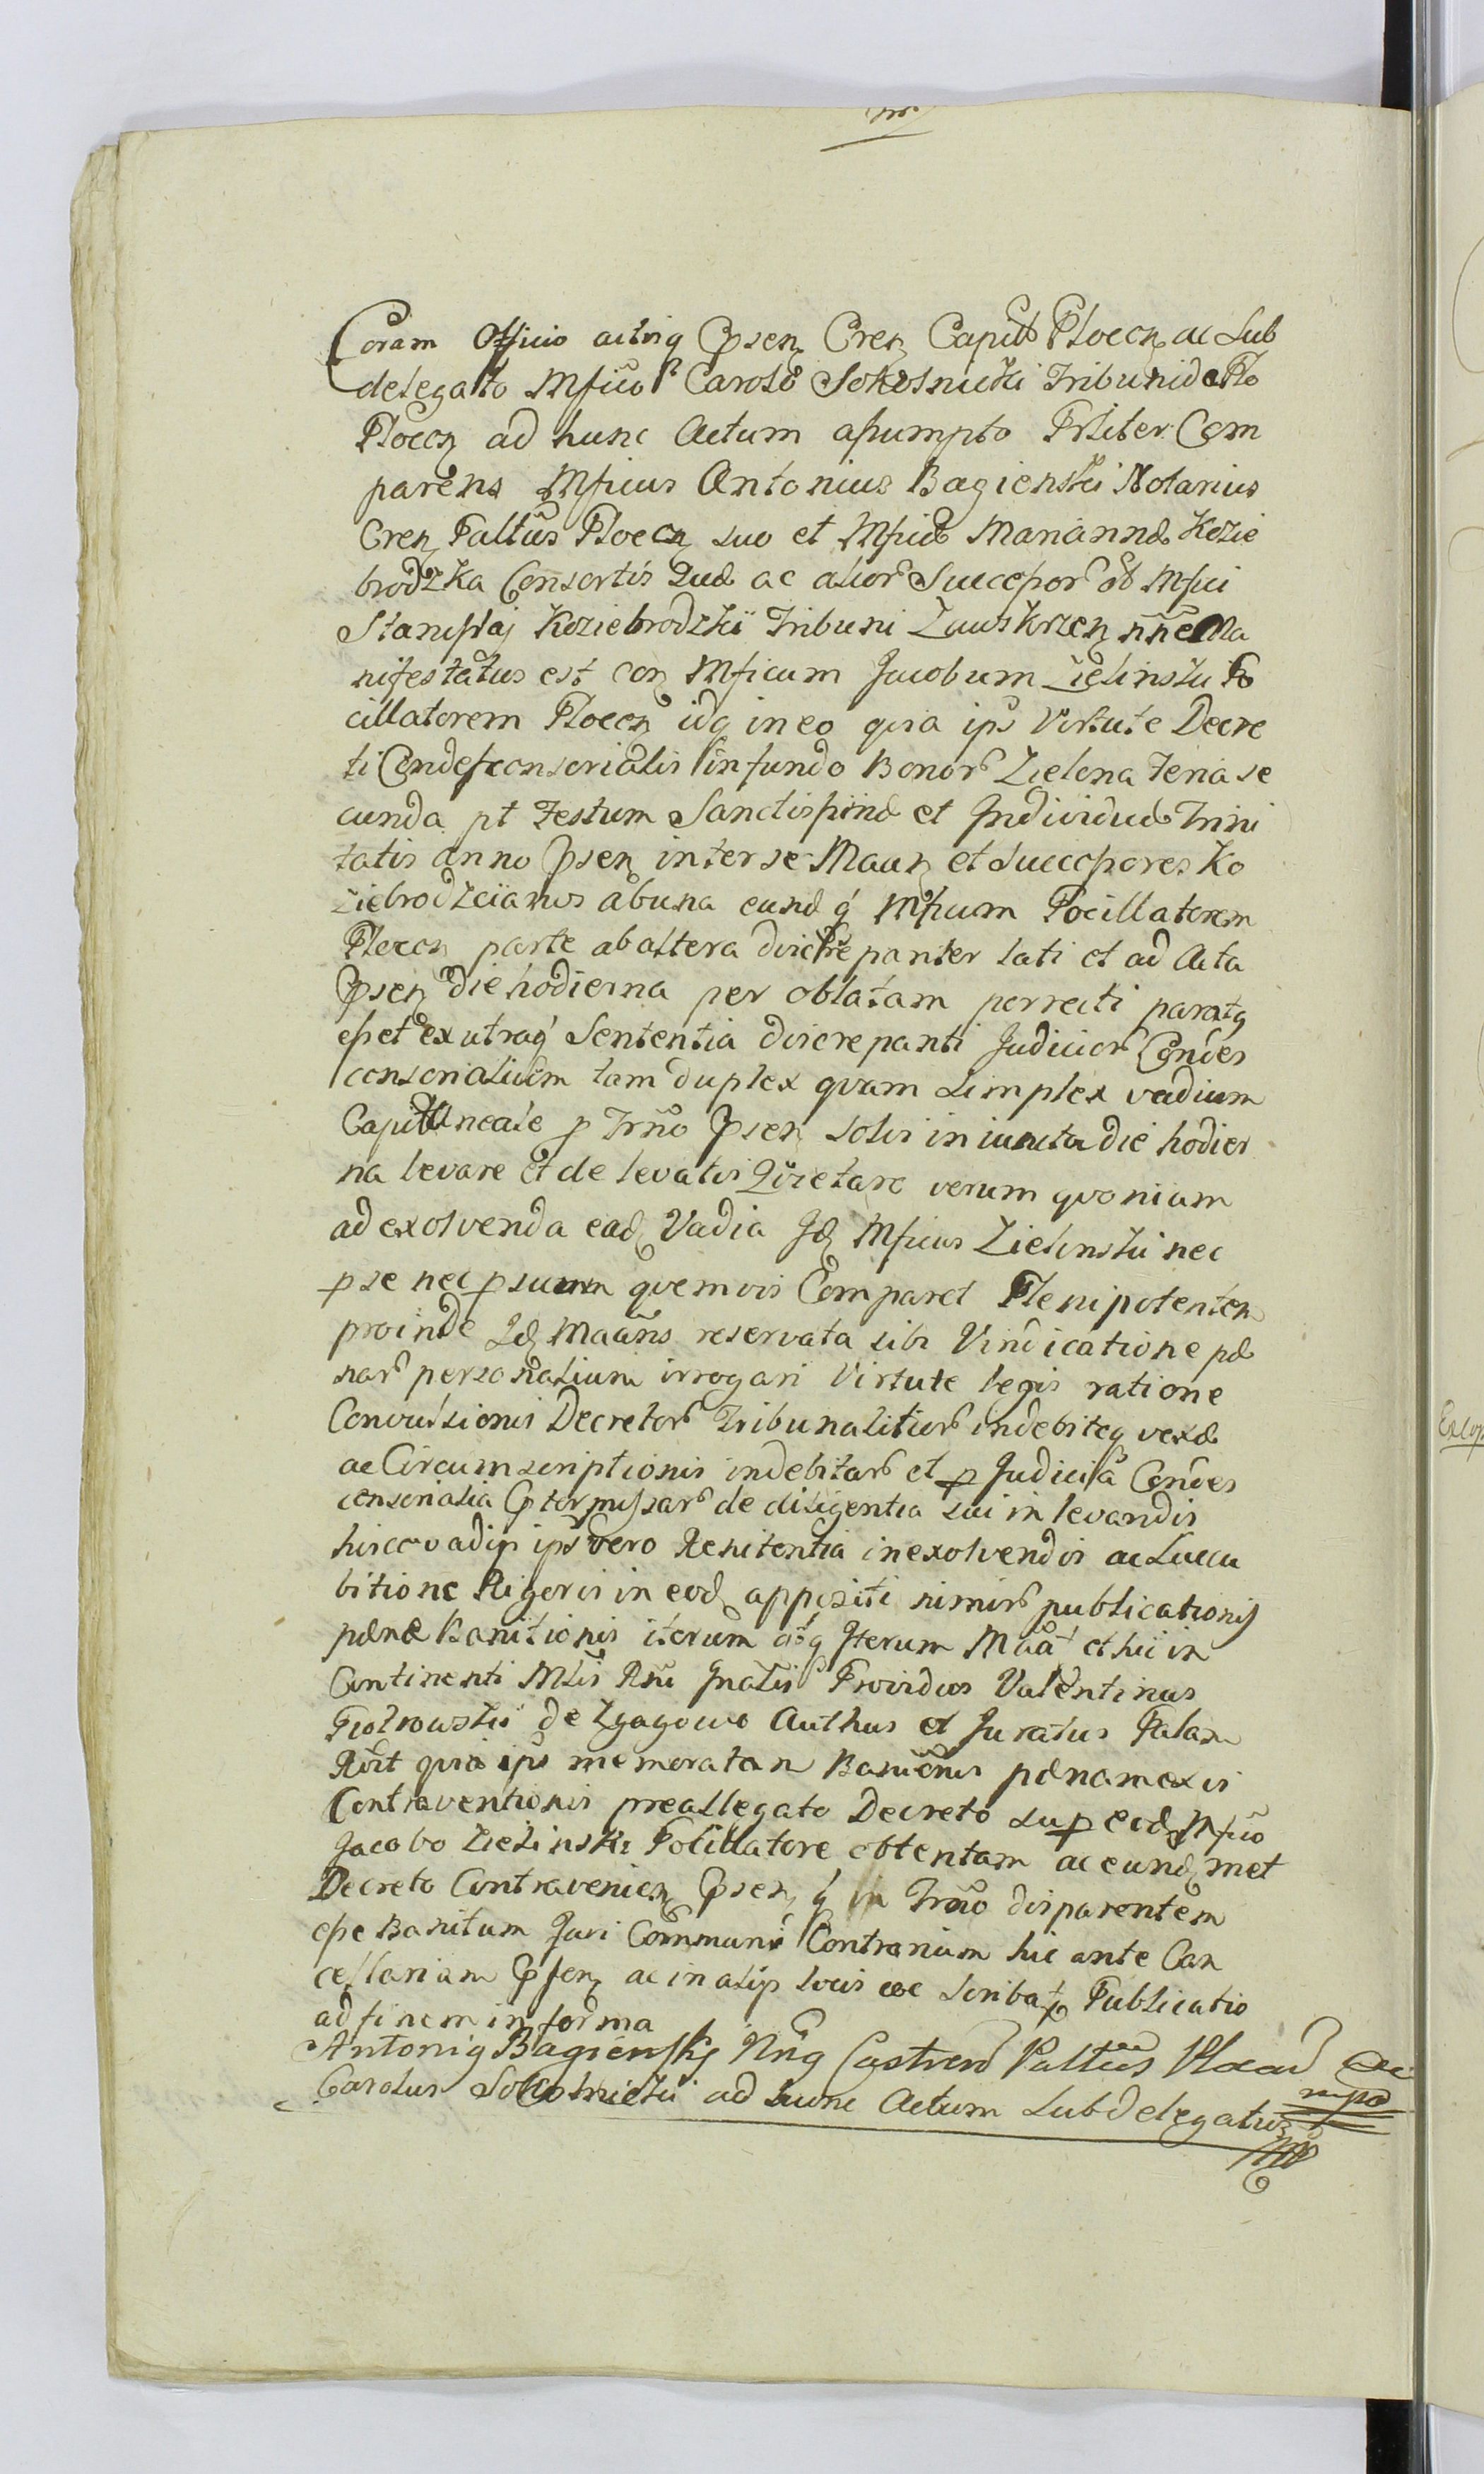 Coram Officio actisq Psen Cren Capit Plocen ac Sub
delegato Mfico Carolo Sokolnicki Tribunida Plo
Plocen ad hunc Actum assumpto Prliter Com
parens Mficus Antonius Bagienski Notarius
Cren Palttus Plocen suo et Mficæ Mariannæ Kozie
brodzka Consortis suæ ac alior Successor ol Mfici
Stanislaj Koziebrodzkii Tribuni Zawskrzen nne Ma
nifestatus est con Mficum Jacobum Zielinski Po
cillatorem Plocen idq in eo quia ips Virtute Decre
ti Condescensorialis in fundo Bonor Zielona Feria se
cunda pt Festum Sanctissimæ et Individuæ Trini
tatis anno Psen inter se Maan et Successores Ko
ziebrodzcianos ab una eundq Mficum Pocillatorem
Plocen parte ab altera discrepanter lati et ad Acta
Psen die hodierna per oblatam porrecti paratq
esset ex utraq Sententia discrepanti Judicior Condes
censorialium tam duplex quam simplex vadium
Capitlneale p Trno Psen solvi iniuncta die hodier
na levare et de levatis Qietare verum quoniam
ad exolvenda ead Vadia Jd Mficus Zielinski nec
p se nec p suum quemvis Comparet Plenipotentem
proinde Jd Maans reservata sibi Vindicatione pæ
nar personalium irrogari Virtute legis ratione
Convulsionis Decretor Tribunalitior indebiteq vexæ
ac Circumscriptionis indebitar et p Judicia Condes
censorialia Ptermissar de diligentia sui in levandis
hisce vadijs ips vero Renitentia in exolvendis ac Succu
bitione Rigoris in eod appositi nimir publicationis
pænæ Banitionis iterum atq Iterum Maat et hic in
Continenti Mtis Rni Gnalis Providus Valentinus
Piotrowski de Zgagowo Authus et Juratus Palam
Rcit quia ips memoratam Banionis pænam ex vi
Contraventionis preallegato Decreto sup eod Mfico
Jacobo Zielinski Pocillatore obtentam ac eund met
Decreto Contravenien Psen q in Trno disparentem
esse Banitum Juri Communi Contrarium hic ante Can
cellariam Psen ac in alijs locis Publicatio
ad finem in forma
Antoniq Bagienskj Nrq Castren Palttus Plocen
Carolus Sokolnicki ad hunc Actum Subdelegatus
mpa